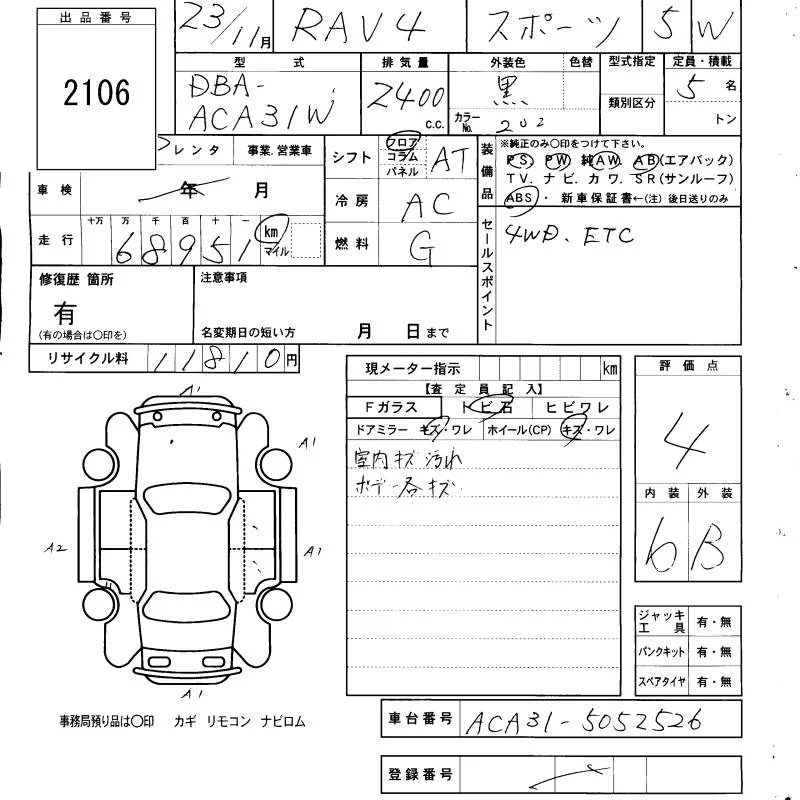 出品番号
2106
23/11月 RAV4 スポーツ 5W
型式 排気量 外装色 色替 型式指定 定員・積載
DBA-ACA31W 2400 c.c. 黒 カラーNo. 202 類別区分 5名 トン
レンタ 事業.営業車
シフト フロア コラム パネル AT
装備品 ※純正のみ〇印をつけて下さい。
PS PW 純AW AB(エアバック)
TV. ナビ. カワ. SR(サンルーフ)
ABS・新車保証書←(注)後日送りのみ
車検 年 月
冷房 AC
走行 十万 万 千 百 十 一 km マイル
68951
燃料 G
セールスポイント
4WD. ETC
修復歴 箇所
有
(有の場合は〇印を)
注意事項
名変期日の短い方 月 日まで
リサイクル料 11810円
現メーター指示 km
【査定員記入】
Fガラス トビ石 ヒビワレ
ドアミラー キズ・ワレ ホイール(CP) キズ・ワレ
室内キズ汚れ
ボデー各キズ
評価点
4
内装 外装
6 B
A1
A1
A2
A1
A1
ジャッキ工具 有・無
パンクキット 有・無
スペアタイヤ 有・無
事務局預り品は〇印 カギ リモコン ナビロム
車台番号 ACA31-5052526
登録番号